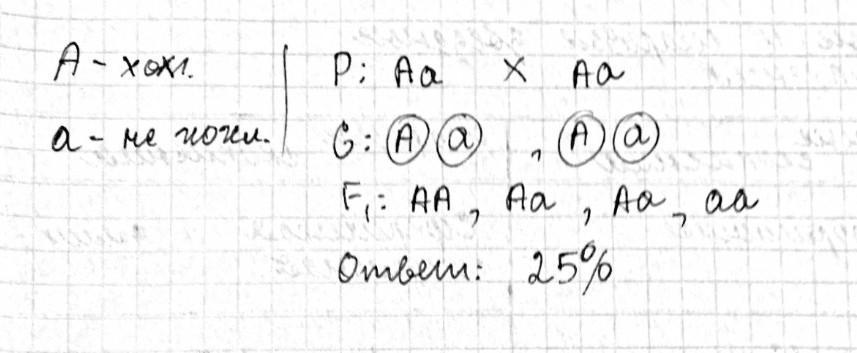 А - хохл.
а - не хохл.
P: Aa × Aa
G: A a , A a
F₁: AA, Aa, Aa, aa
Ответ: 25%